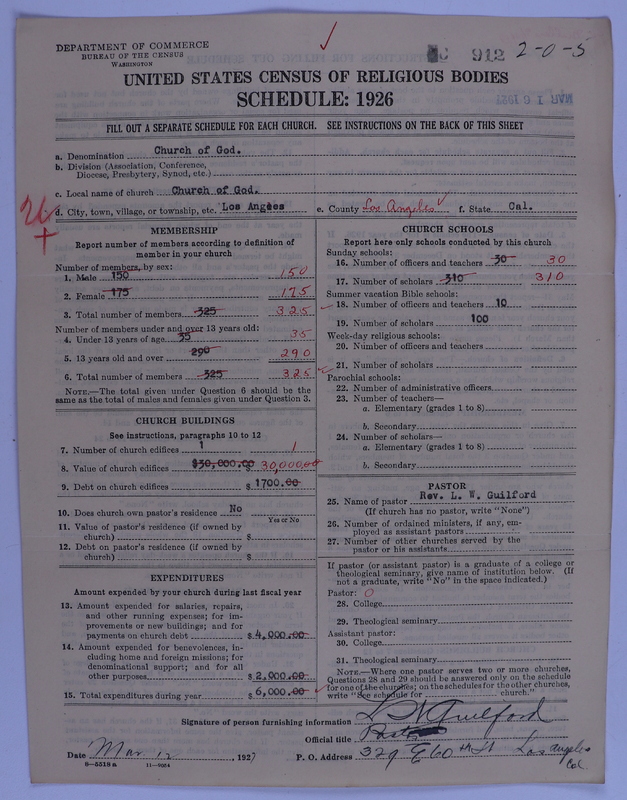 DEPARTMENT OF COMMERCE
BUREAU OF THE CENSUS
WASHINGTON
912 2-0-5
UNITED STATES CENSUS OF RELIGIOUS BODIES
SCHEDULE: 1926
MAR 16 1927
FILL OUT A SEPARATE SCHEDULE FOR EACH CHURCH. SEE INSTRUCTIONS ON THE BACK OF THIS SHEET
a. Denomination Church of God.
b. Division (Association, Conference,
Diocese, Presbytery, Synod, etc.)
c. Local name of church Church of God.
d. City, town, village, or township, etc. Los Angles e. County Los Angeles f. State Cal.
MEMBERSHIP
Report number of members according to definition of
member in your church
Number of members, by sex:
1. Male 150 150
2. Female 175 175
3. Total number of members 325 325
Number of members under and over 13 years old:
4. Under 13 years of age 35 35
5. 13 years old and over 290 290
6. Total number of members 325 325
NOTE.—The total given under Question 6 should be the
same as the total of males and females given under Question 3.
CHURCH BUILDINGS
See instructions, paragraphs 10 to 12
7. Number of church edifices 1 1
8. Value of church edifices $30,000.00 $ 30,000.00
9. Debt on church edifices $ 1700.00
10. Does church own pastor's residence No
Yes or No
11. Value of pastor's residence (if owned by
church) $
12. Debt on pastor's residence (if owned by
church) $
EXPENDITURES
Amount expended by your church during last fiscal year
13. Amount expended for salaries, repairs,
and other running expenses; for im-
provements or new buildings; and for
payments on church debt $ 4,000.00
14. Amount expended for benevolences, in-
cluding home and foreign missions; for
denominational support; and for all
other purposes $ 2,000.00
15. Total expenditures during year $ 6,000.00
CHURCH SCHOOLS
Report here only schools conducted by this church
Sunday schools:
16. Number of officers and teachers 30 30
17. Number of scholars 310 310
Summer vacation Bible schools:
18. Number of officers and teachers 10
19. Number of scholars 100
Week-day religious schools:
20. Number of officers and teachers
21. Number of scholars
Parochial schools:
22. Number of administrative officers
23. Number of teachers—
a. Elementary (grades 1 to 8)
b. Secondary
24. Number of scholars—
a. Elementary (grades 1 to 8)
b. Secondary
PASTOR
25. Name of pastor Rev. L. W. Guilford
(If church has no pastor, write "None")
26. Number of ordained ministers, if any, em-
ployed as assistant pastors
27. Number of other churches served by the
pastor or his assistants
If pastor (or assistant pastor) is a graduate of a college or
theological seminary, give name of institution below. (If
not a graduate, write "No" in the space indicated.)
Pastor: 0
28. College
29. Theological seminary
Assistant pastor:
30. College
31. Theological seminary
NOTE.—Where one pastor serves two or more churches,
Questions 28 and 29 should be answered only on the schedule
for one of the churches; on the schedules for the other churches,
write "See schedule for church."
Signature of person furnishing information L W Guilford
Official title Pastor
Date Mar 12, 1927 P. O. Address 329 E 60th St Los Angeles
Cal.
8-5518a 11-9024